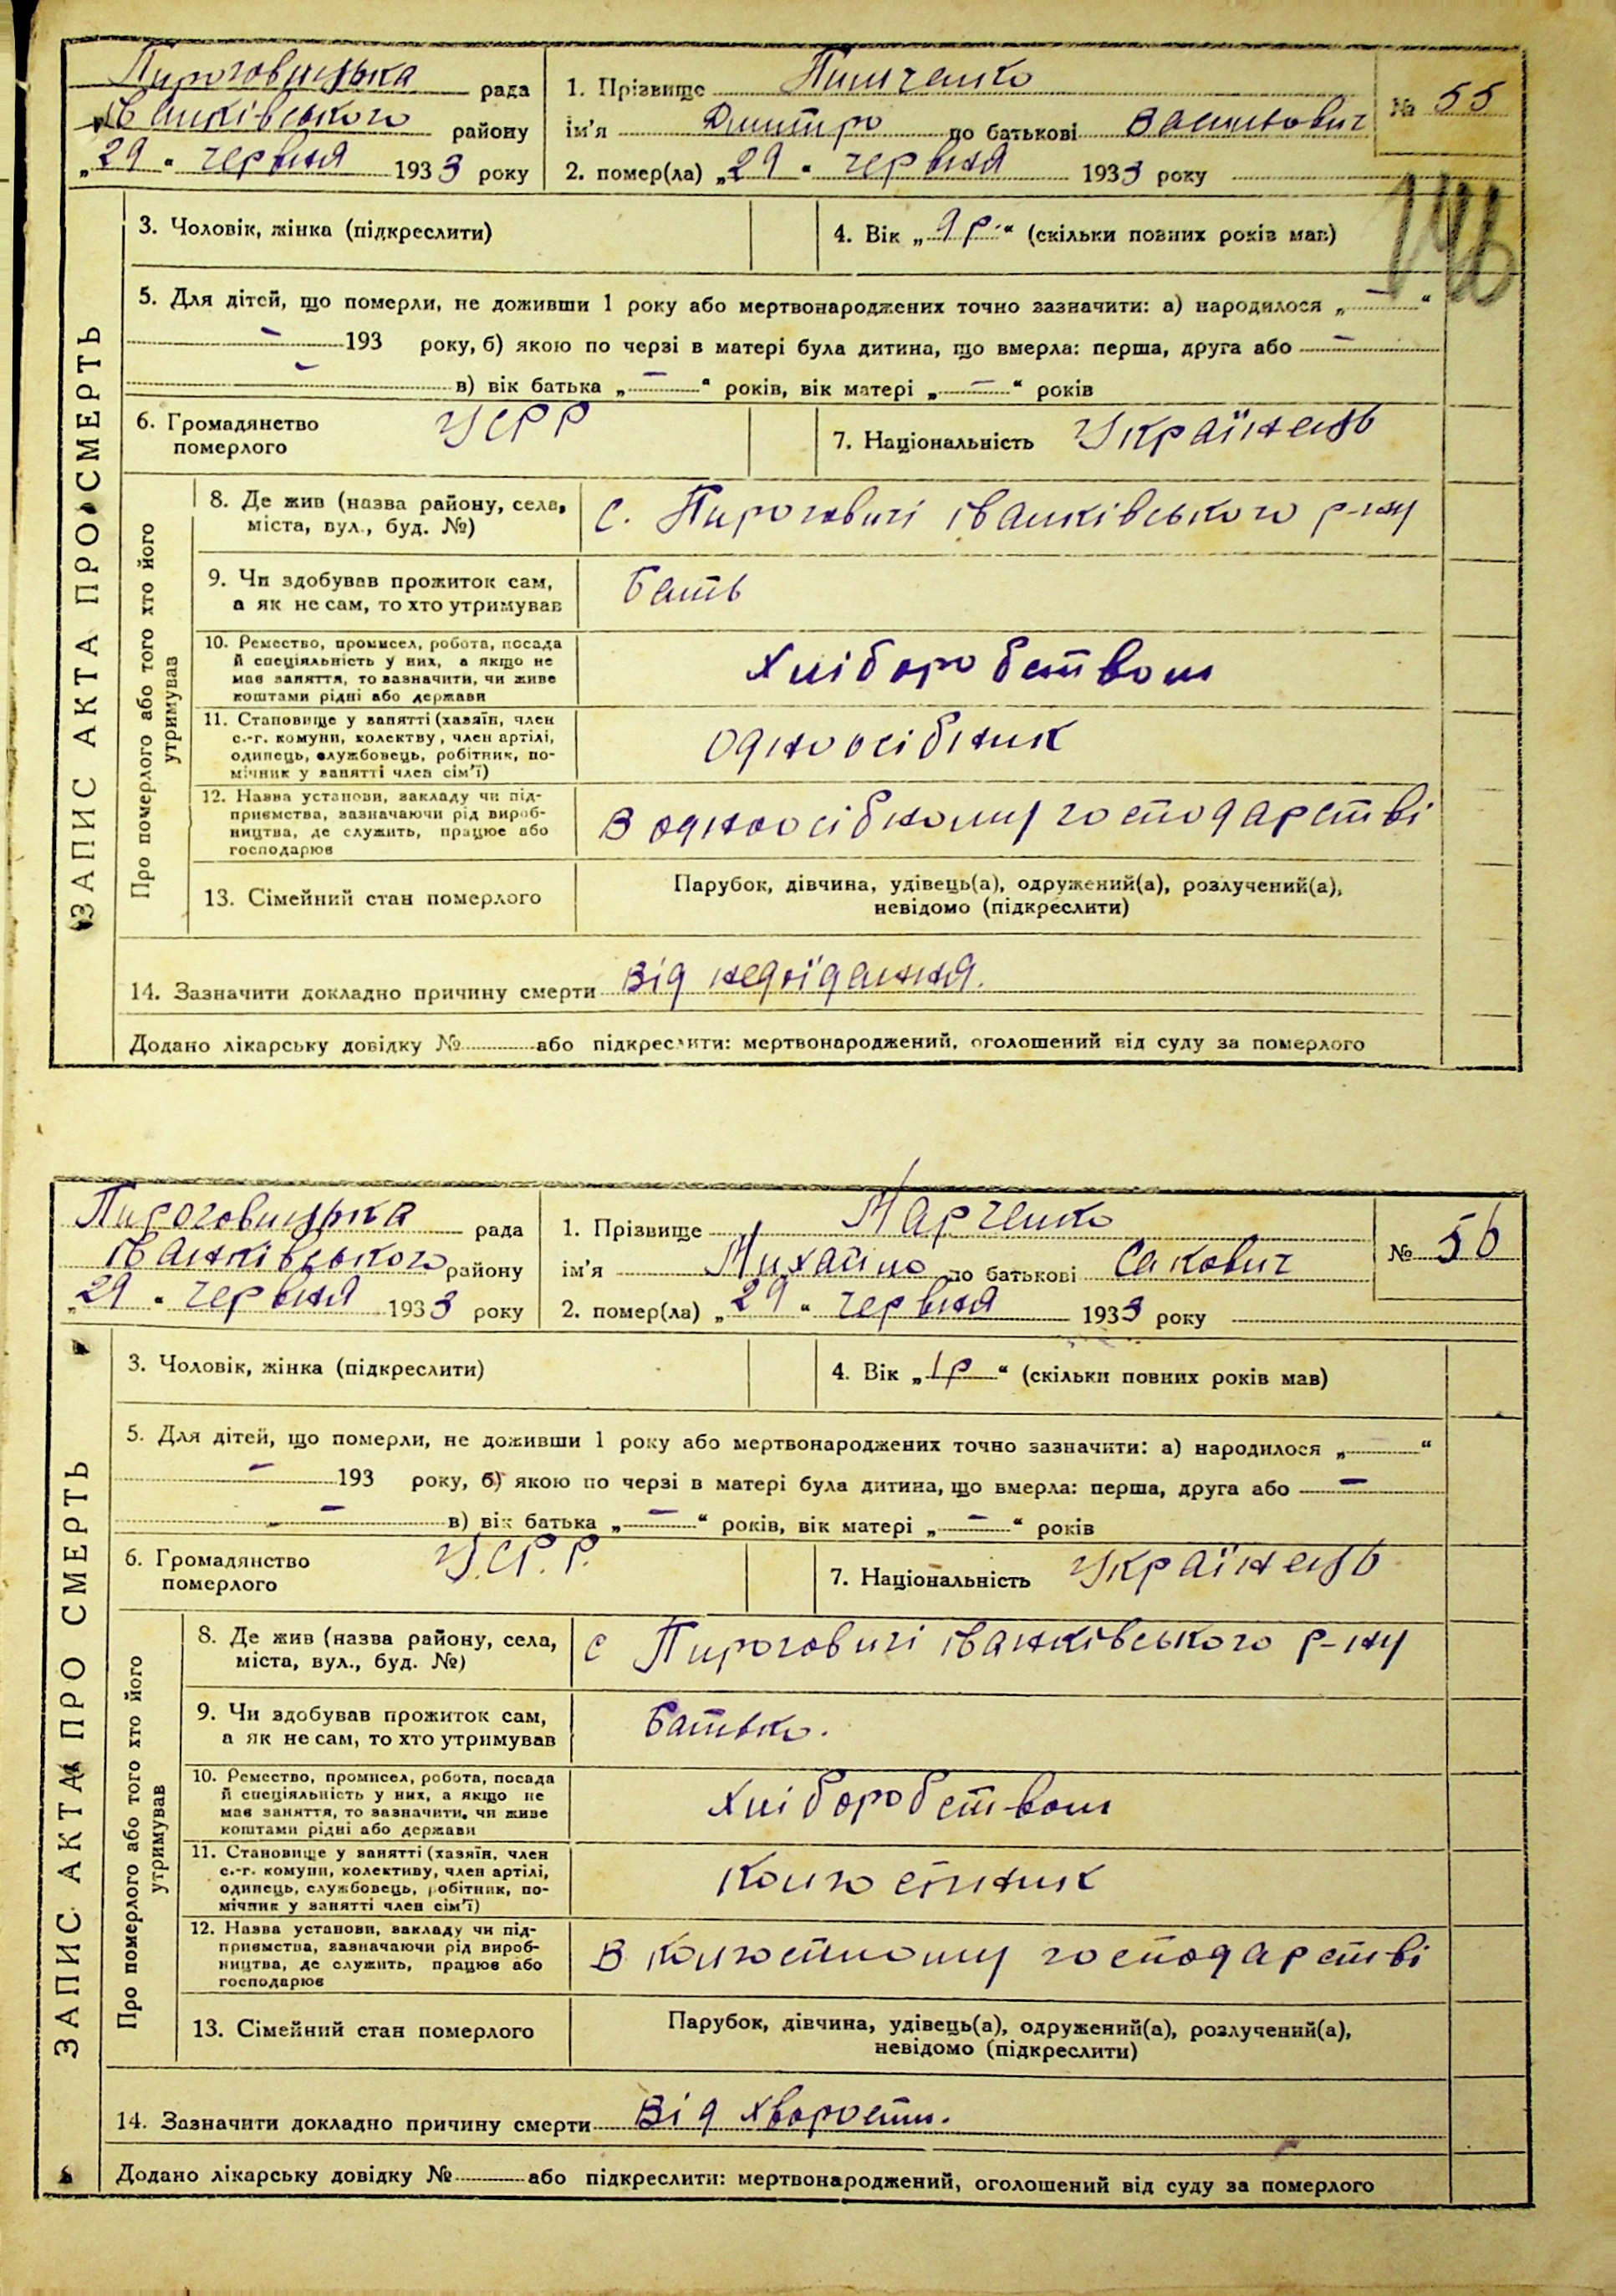 Пироговицька рада
Іванківського району
„29" червня 1933 року
1. Прізвище Пинченко
ім'я Дмитро по батькові Васильович
2. помер(ла) „29" червня 1933 року
№ 55
146
ЗАПИС АКТА ПРО СМЕРТЬ
3. Чоловік, жінка (підкреслити)
4. Вік „9 р." (скільки повних років мав)
5. Для дітей, що померли, не доживши 1 року або мертвонароджених точно зазначити: а) народилося „—"
— 193 року, б) якою по черзі в матері була дитина, що вмерла: перша, друга або —
— в) вік батька „—" років, вік матері „—" років
6. Громадянство
померлого
УСРР
7. Національність Українець
Про померлого або того хто його
утримував
8. Де жив (назва району, села,
міста, вул., буд. №)
с. Пироговичі Іванківського р-ну
9. Чи здобував прожиток сам,
а як не сам, то хто утримував
Бать
10. Ремество, промисел, робота, посада
й спеціяльність у них, а якщо не
має заняття, то зазначити, чи живе
коштами рідні або держави
Хліборобством
11. Становище у занятті (хазяїн, член
с.-г. комуни, колектву, член артілі,
одинець, службовець, робітник, по-
мічник у занятті член сім'ї)
Одноосібник
12. Назва установи, закладу чи під-
приємства, зазначаючи рід вироб-
ництва, де служить, працює або
господарює
В одноосібному господарстві
13. Сімейний стан померлого
Парубок, дівчина, удівець(а), одружений(а), розлучений(а),
невідомо (підкреслити)
14. Зазначити докладно причину смерти Від недоїдання.
Додано лікарську довідку № або підкреслити: мертвонароджений, оголошений від суду за померлого
Пироговицька рада
Іванківського району
„29" червня 1933 року
1. Прізвище Марченко
ім'я Михайло по батькові Сакович
2. помер(ла) „29" червня 1933 року
№ 56
ЗАПИС АКТА ПРО СМЕРТЬ
3. Чоловік, жінка (підкреслити)
4. Вік „1 р" (скільки повних років мав)
5. Для дітей, що померли, не доживши 1 року або мертвонароджених точно зазначити: а) народилося „—"
— 193 року, б) якою по черзі в матері була дитина, що вмерла: перша, друга або —
— в) вік батька „—" років, вік матері „—" років
6. Громадянство
померлого
У.С.Р.Р.
7. Національність Українець
Про померлого або того хто його
утримував
8. Де жив (назва району, села,
міста, вул., буд. №)
с Пироговичі Іванківського р-ну
9. Чи здобував прожиток сам,
а як не сам, то хто утримував
Батько.
10. Ремество, промисел, робота, посада
й спеціяльність у них, а якщо не
має заняття, то зазначити, чи живе
коштами рідні або держави
Хліборобством
11. Становище у занятті (хазяїн, член
с.-г. комуни, колективу, член артілі,
одинець, службовець, робітник, по-
мічник у занятті член сім'ї)
Колгоспник
12. Назва установи, закладу чи під-
приємства, зазначаючи рід вироб-
ництва, де служить, працює або
господарює
В колгоспному господарстві
13. Сімейний стан померлого
Парубок, дівчина, удівець(а), одружений(а), розлучений(а),
невідомо (підкреслити)
14. Зазначити докладно причину смерти Від хворости.
Додано лікарську довідку № або підкреслити: мертвонароджений, оголошений від суду за померлого